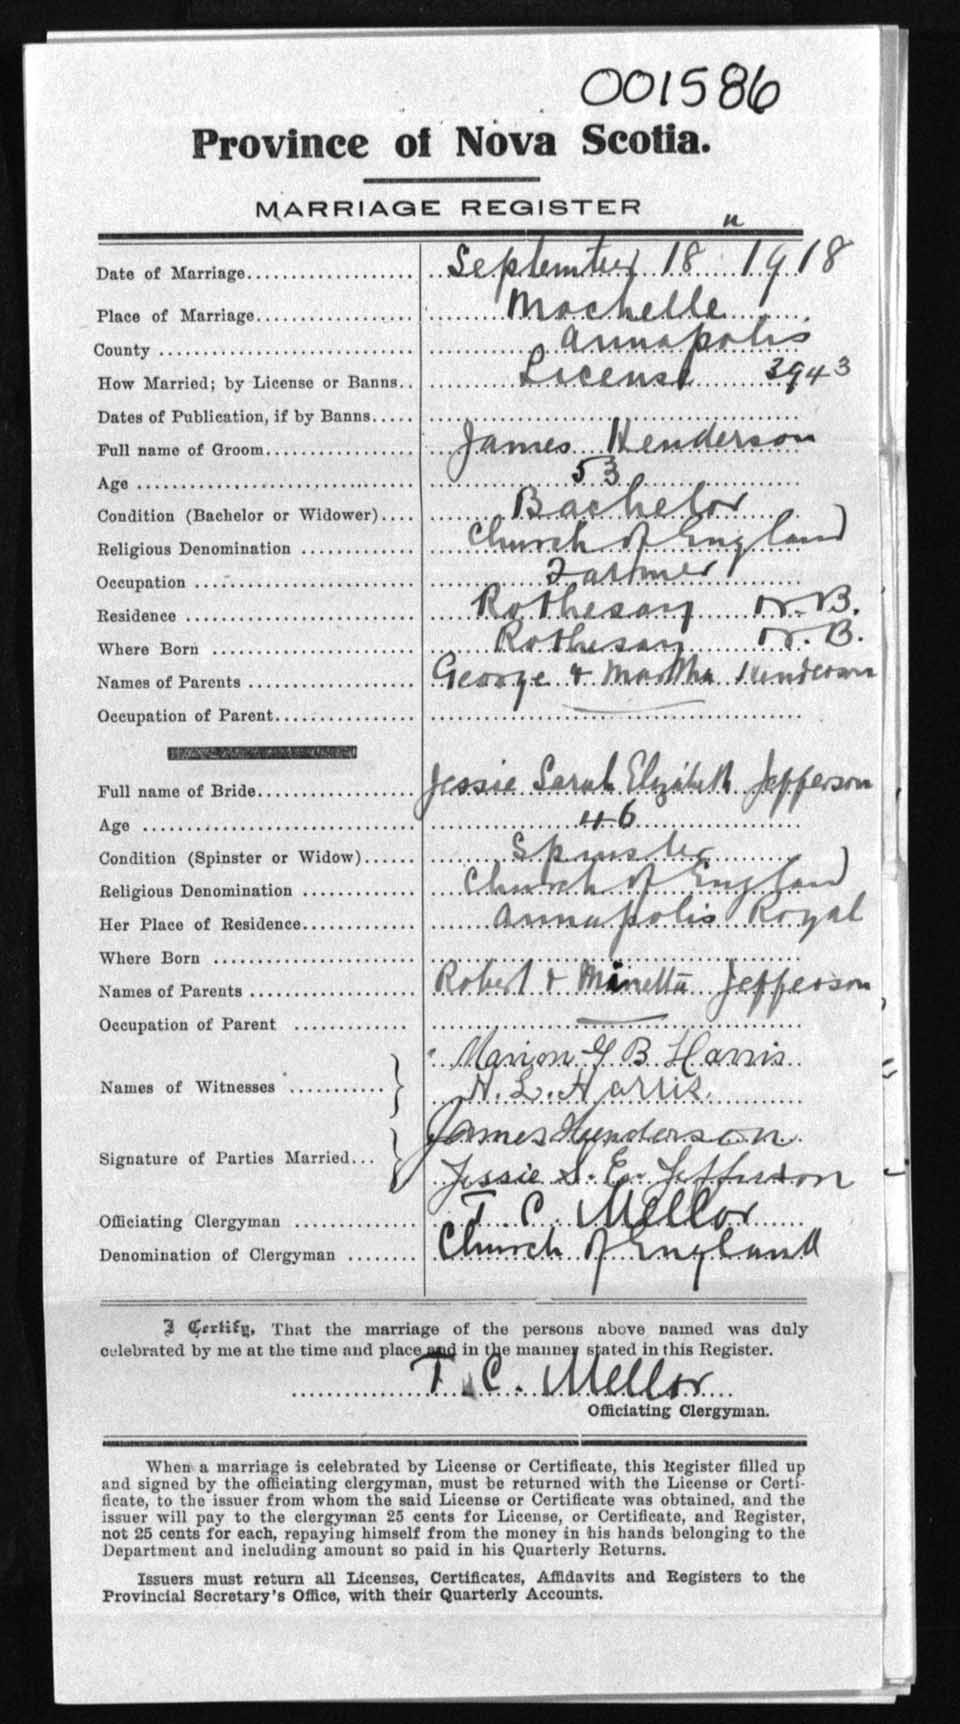 001586
Province of Nova Scotia.
MARRIAGE REGISTER
Date of Marriage................... September 18 " 1918
Place of Marriage.................. Mochelle
County ............................. Annapolis
How Married; by License or Banns.. License 3943
Dates of Publication, if by Banns.....
Full name of Groom................. James Henderson
Age ................................ 53
Condition (Bachelor or Widower).... Bachelor
Religious Denomination ............. Church of England
Occupation ......................... Farmer
Residence .......................... Rothesay N.B.
Where Born ......................... Rothesay N.B.
Names of Parents ................... George & Martha Henderson
Occupation of Parent................
Full name of Bride.................. Jessie Sarah Elizabeth Jefferson
Age ................................ 46
Condition (Spinster or Widow)...... Spinster
Religious Denomination ............. Church of England
Her Place of Residence............. Annapolis Royal
Where Born .........................
Names of Parents ................... Robert & Minetta Jefferson
Occupation of Parent .............
Marion G B Harris
Names of Witnesses ............ H. L. Harris
James Henderson
Signature of Parties Married... Jessie S. E. Jefferson
Officiating Clergyman .............. T C Mellor
Denomination of Clergyman ........ Church of England
I Certify, That the marriage of the persons above named was duly
celebrated by me at the time and place and in the manner stated in this Register.
T. C. Mellor
Officiating Clergyman.
When a marriage is celebrated by License or Certificate, this Register filled up
and signed by the officiating clergyman, must be returned with the License or Certi-
ficate, to the issuer from whom the said License or Certificate was obtained, and the
issuer will pay to the clergyman 25 cents for License, or Certificate, and Register,
not 25 cents for each, repaying himself from the money in his hands belonging to the
Department and including amount so paid in his Quarterly Returns.
Issuers must return all Licenses, Certificates, Affidavits and Registers to the
Provincial Secretary's Office, with their Quarterly Accounts.